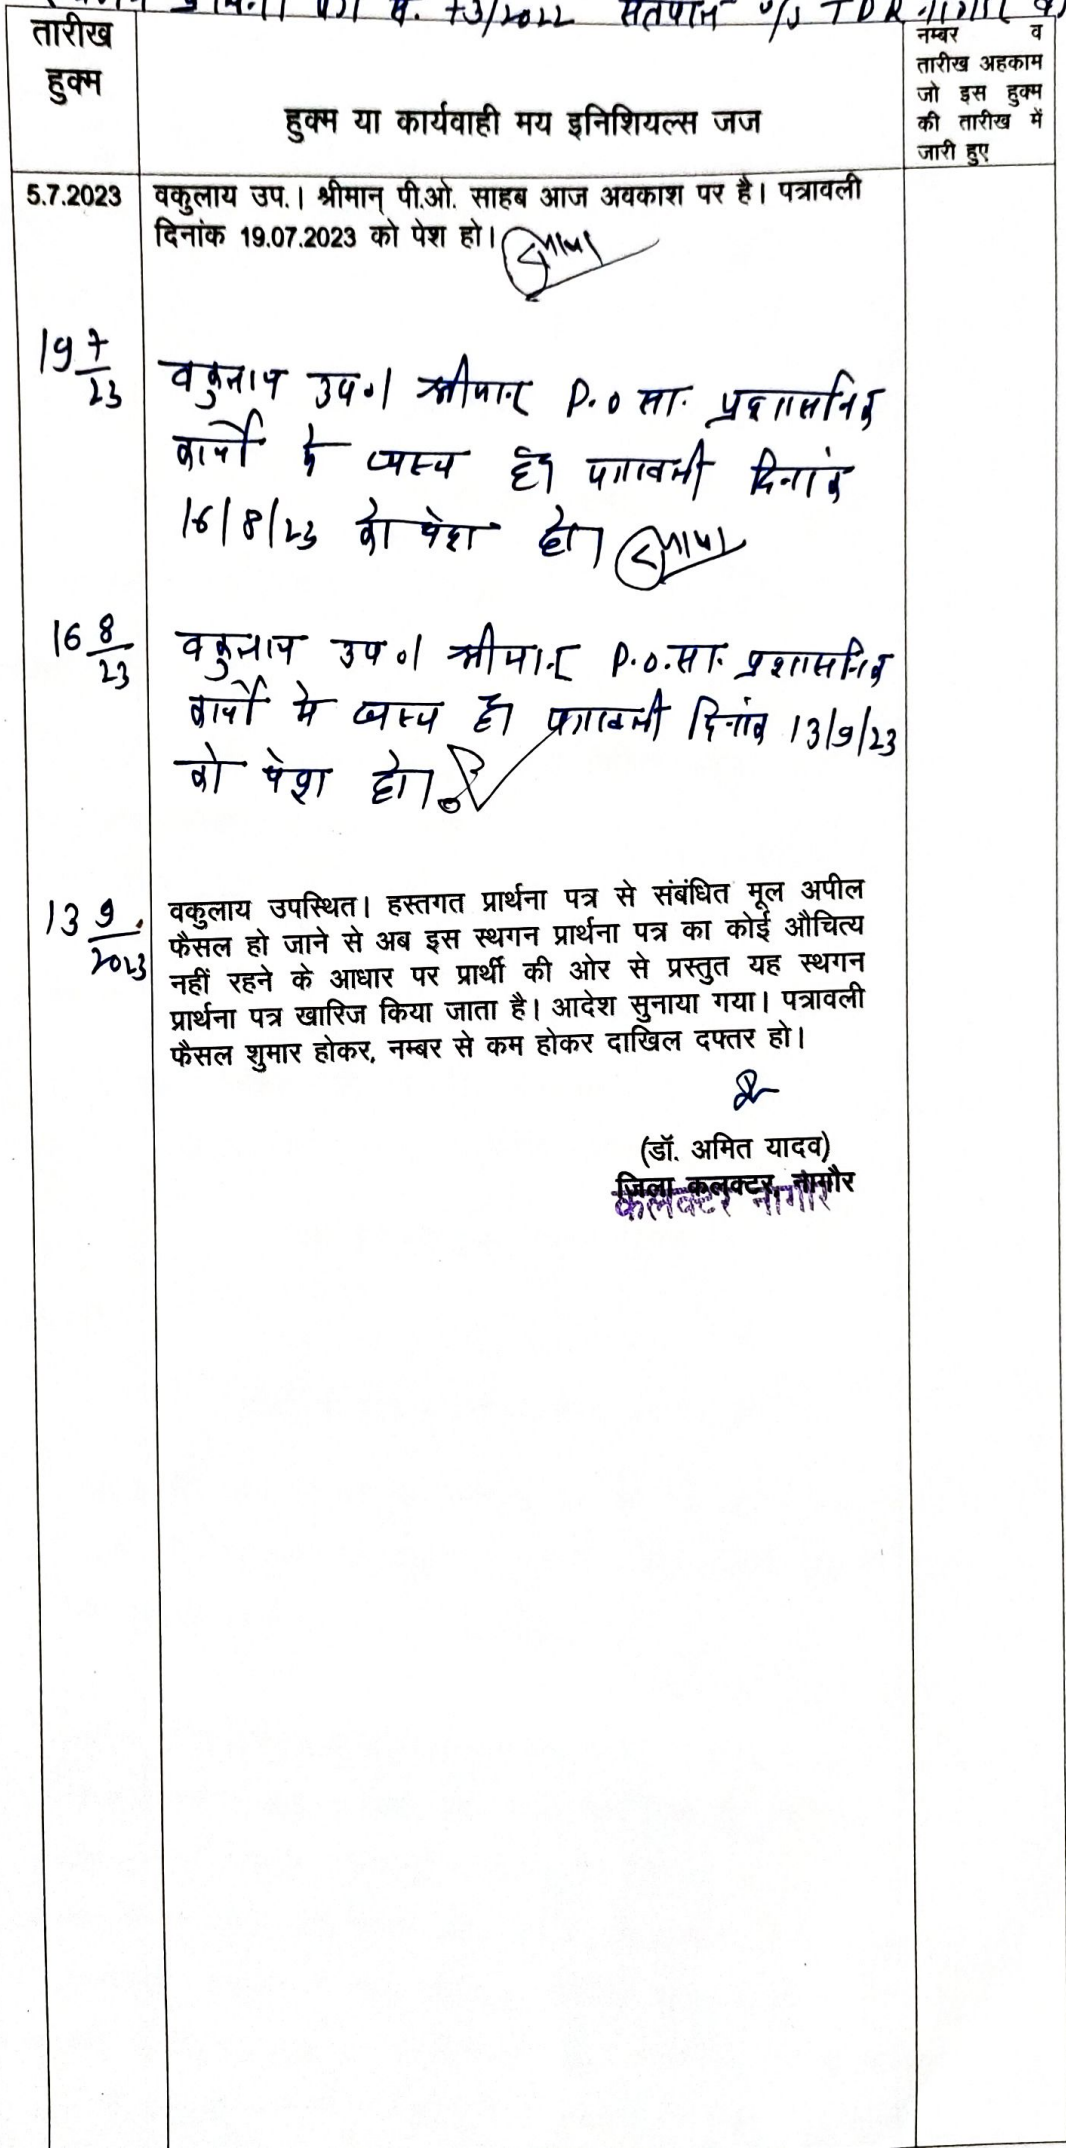 73/2022 सतपाल v/s TDR नागौर
तारीख
हुक्म
हुक्म या कार्यवाही मय इनिशियल्स जज
नम्बर व
तारीख अहकाम
जो इस हुक्म
की तारीख में
जारी हुए
5.7.2023 वकुलाय उप.। श्रीमान् पी.ओ. साहब आज अवकाश पर है। पत्रावली
दिनांक 19.07.2023 को पेश हो।
19 7/23 वकुलाय उप०। श्रीमान् P.O सा. प्रशासनिक
कार्यो मे व्यस्त है। पत्रावली दिनांक
16/8/23 को पेश हो।
16 8/23 वकुलाय उप०। श्रीमान् P.O.सा. प्रशासनिक
कार्यो मे व्यस्त है। पत्रावली दिनांक 13/9/23
को पेश हो।
13 9/2023 वकुलाय उपस्थित। हस्तगत प्रार्थना पत्र से संबंधित मूल अपील
फैसल हो जाने से अब इस स्थगन प्रार्थना पत्र का कोई औचित्य
नहीं रहने के आधार पर प्रार्थी की ओर से प्रस्तुत यह स्थगन
प्रार्थना पत्र खारिज किया जाता है। आदेश सुनाया गया। पत्रावली
फैसल शुमार होकर, नम्बर से कम होकर दाखिल दफ्तर हो।
(डॉ. अमित यादव)
जिला कलक्टर, नागौर
कलक्टर नागौर